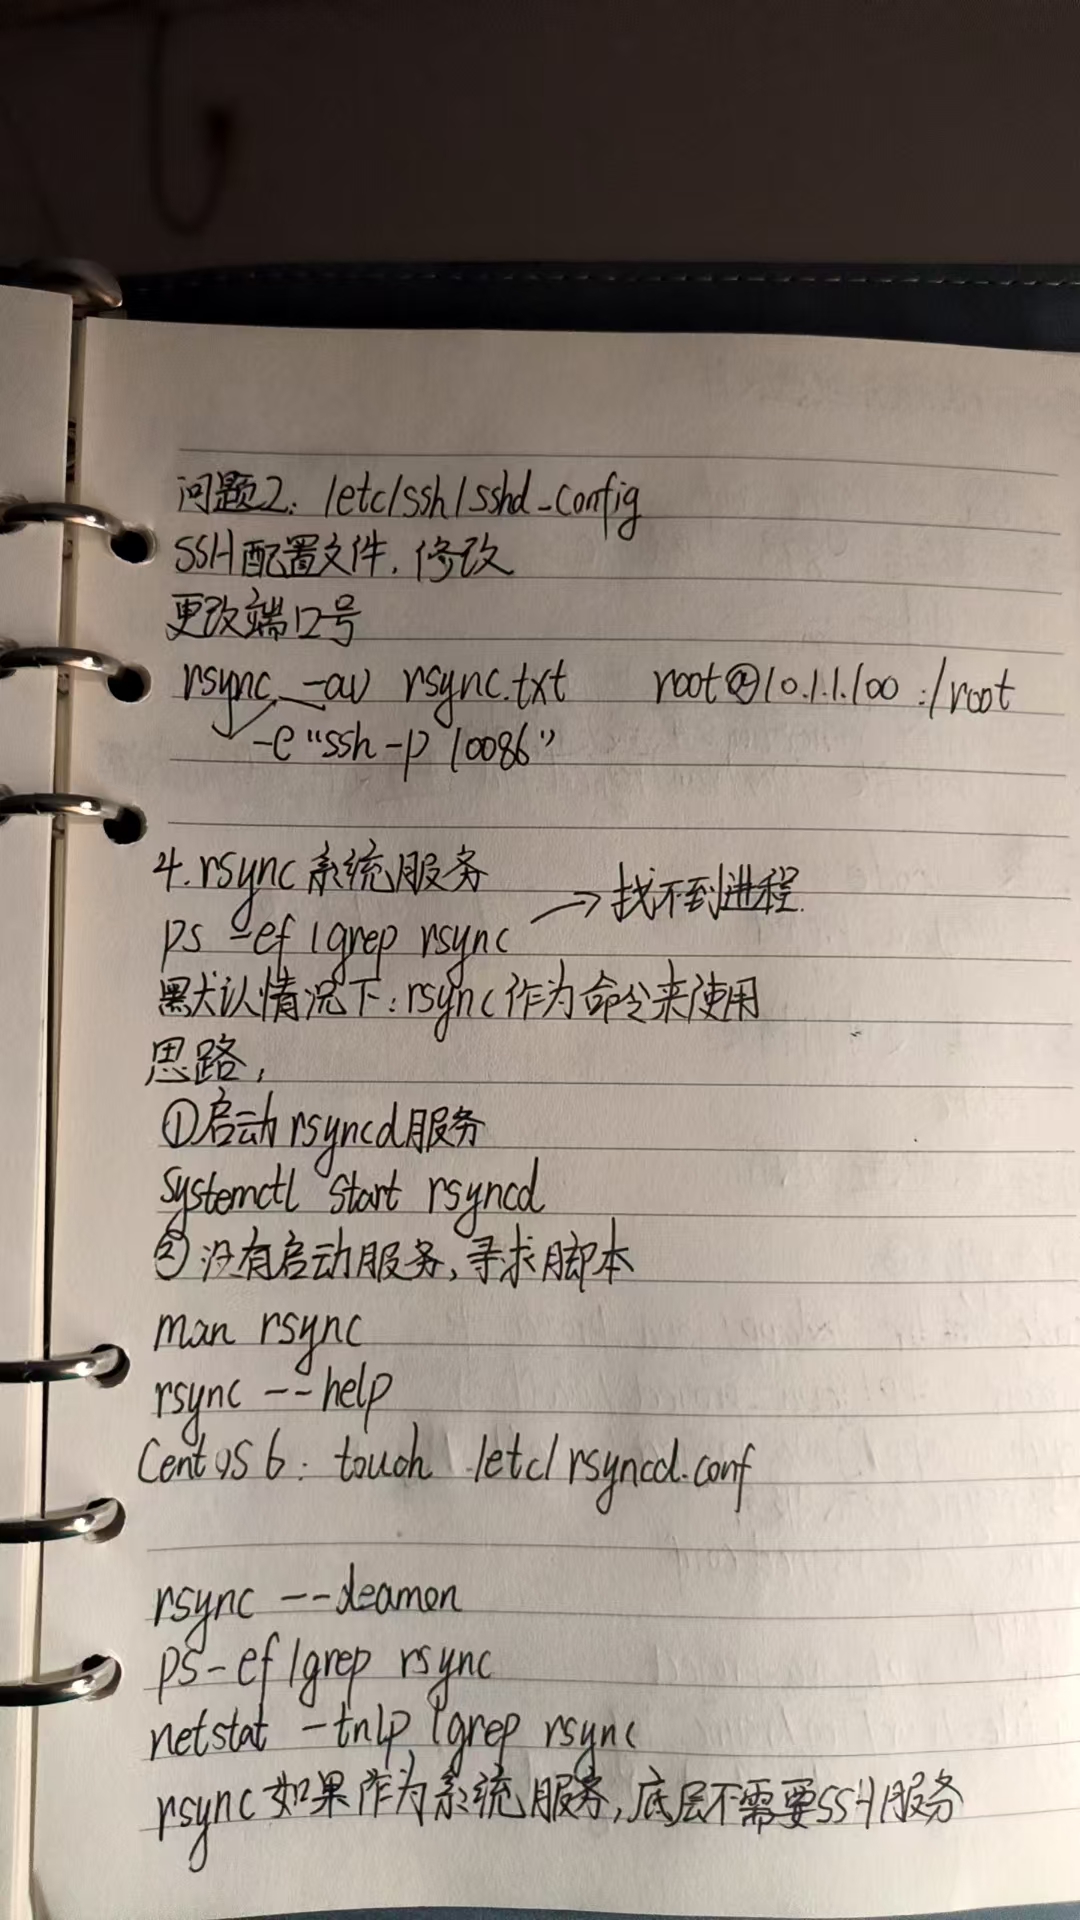 问题2: /etc/ssh/sshd_config
SSH配置文件, 修改
更改端口号
rsync -av rsync.txt root@10.1.1.100:/root
-e "ssh -p 10086"
4. rsync系统服务
ps -ef |grep rsync → 找不到进程.
默认情况下: rsync作为命令来使用
思路,
①启动rsyncd服务
systemctl start rsyncd
②没有启动服务, 寻求脚本
man rsync
rsync --help
CentOS 6: touch /etc/rsyncd.conf
rsync --deamon
ps -ef |grep rsync
netstat -tnlp |grep rsync
rsync如果作为系统服务, 底层不需要SSH服务